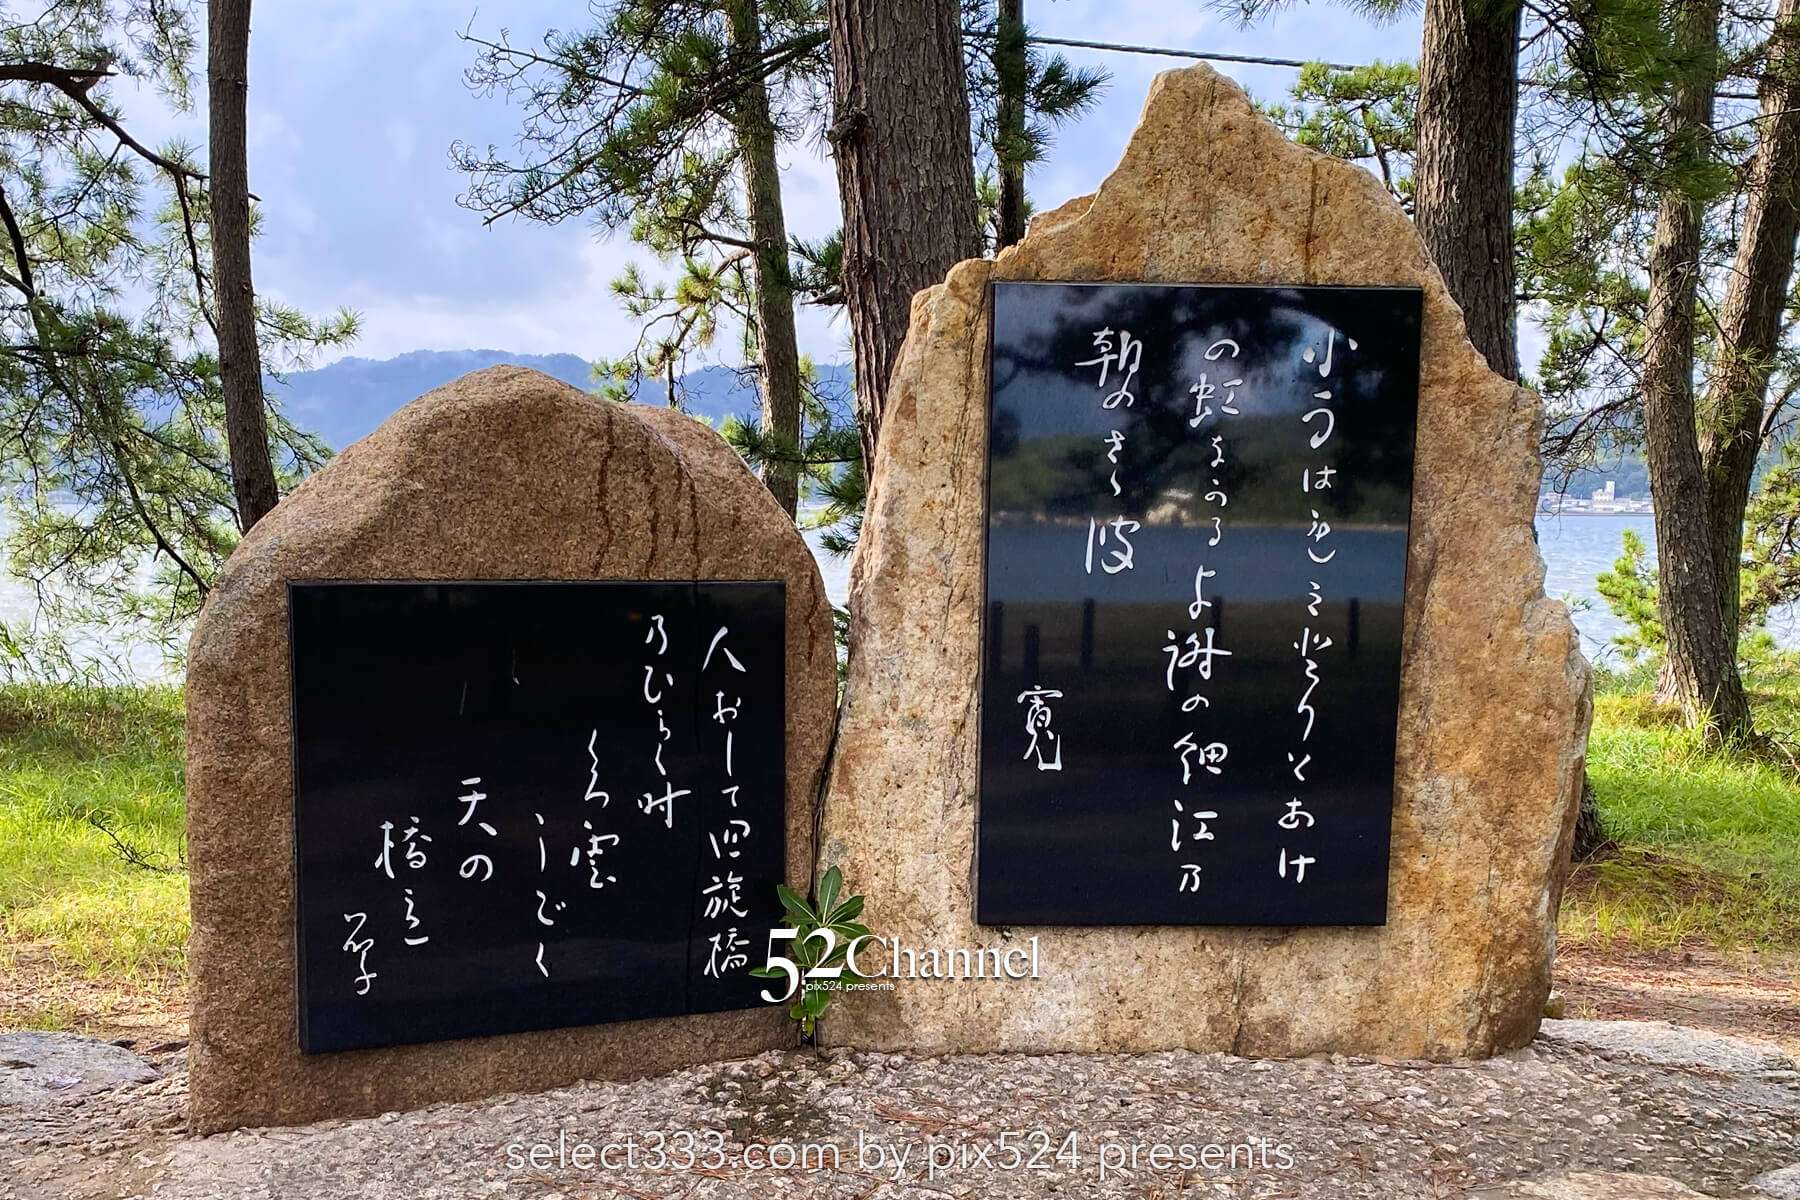 小雨はれミどりとあけ
の虹なかるよ謝の細江乃
朝のさゝ波
寛
人おして回旋橋
乃ひらく時
くろ雲
うごく
天の
橋立
晶子
52Channel
pix524 presents
select333.com by pix524 presents